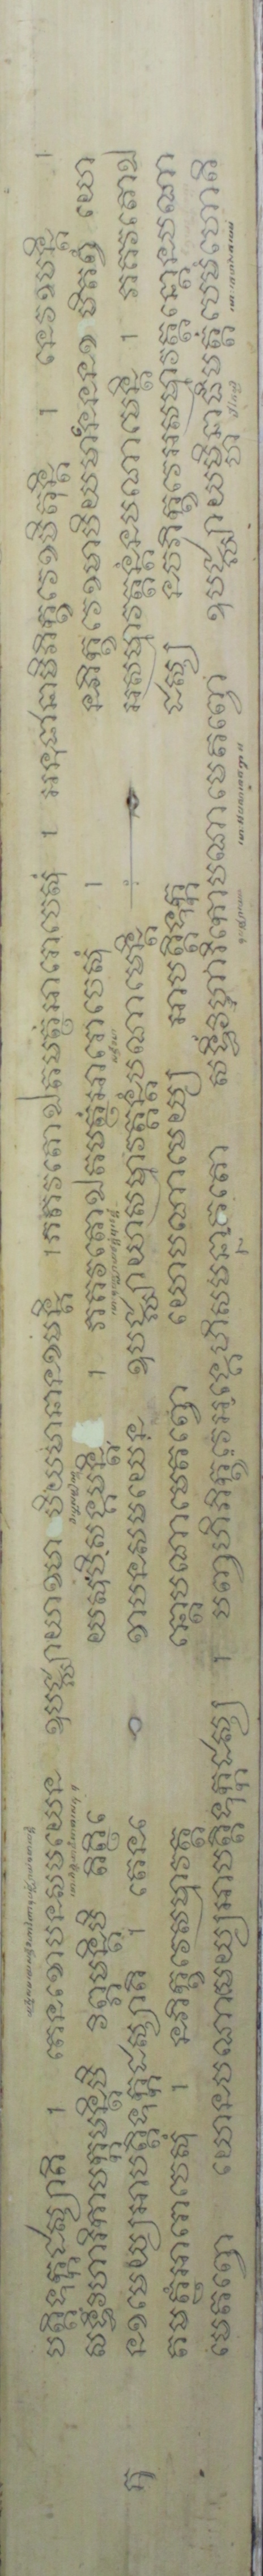 បត្តិទុក្កដស្សាតិ ។ តេនខោបនសមយេន ឧបជ្ឈាយាខមា បិយមានានខមន្តិ ។ ភគវតោឯតមត្ថំអារោចេសុំ ។ អនុជានាមិភិក្ខវេខមិតុន្តិ ។ នេវខមន្តិ ។
សទ្ធិវិហារិកាបក្កមន្តិបិ វិព្ភមន្តិបិ តិត្ថិ យេសុបិសង្កមន្តិ ។ ភគវតោឯតមត្ថំអារោចេសុំ ។ នភិក្ខវេខមាបិយមានេនន ខមិតព្វំ យោ
នខមេយ្យអាបត្តិទុក្កដស្សាតិ ។ តេន ខោបនសមយេន ឧបជ្ឈាយាសម្មាវត្តន្តំបណាមេន្តិ អសម្មាវត្តន្តំនបណាមេន្តិ ។ ភគវតោឯ
តមត្ថំអារោចេសុំ ។ នភិក្ខវេសម្មាវត្ត ន្តោបណាមេតព្វោ យោបណាមេយ្យ អាបត្តិទុក្ក ដស្ស នចភិក្ខវេអសម្មាវត្តន្តោនបណា
មេតព្វោ យោនបណាមេយ្យអាបត្តិទុក្កដស្ស ។ បញ្ចហិភិក្ខវេអង្គេហិសមន្នាគតោ សទ្ធិវិហារិកោបណាមេតព្វោ ឧបជ្ឈាយម្ហិនាធិមត្តំបេមំហោតិ